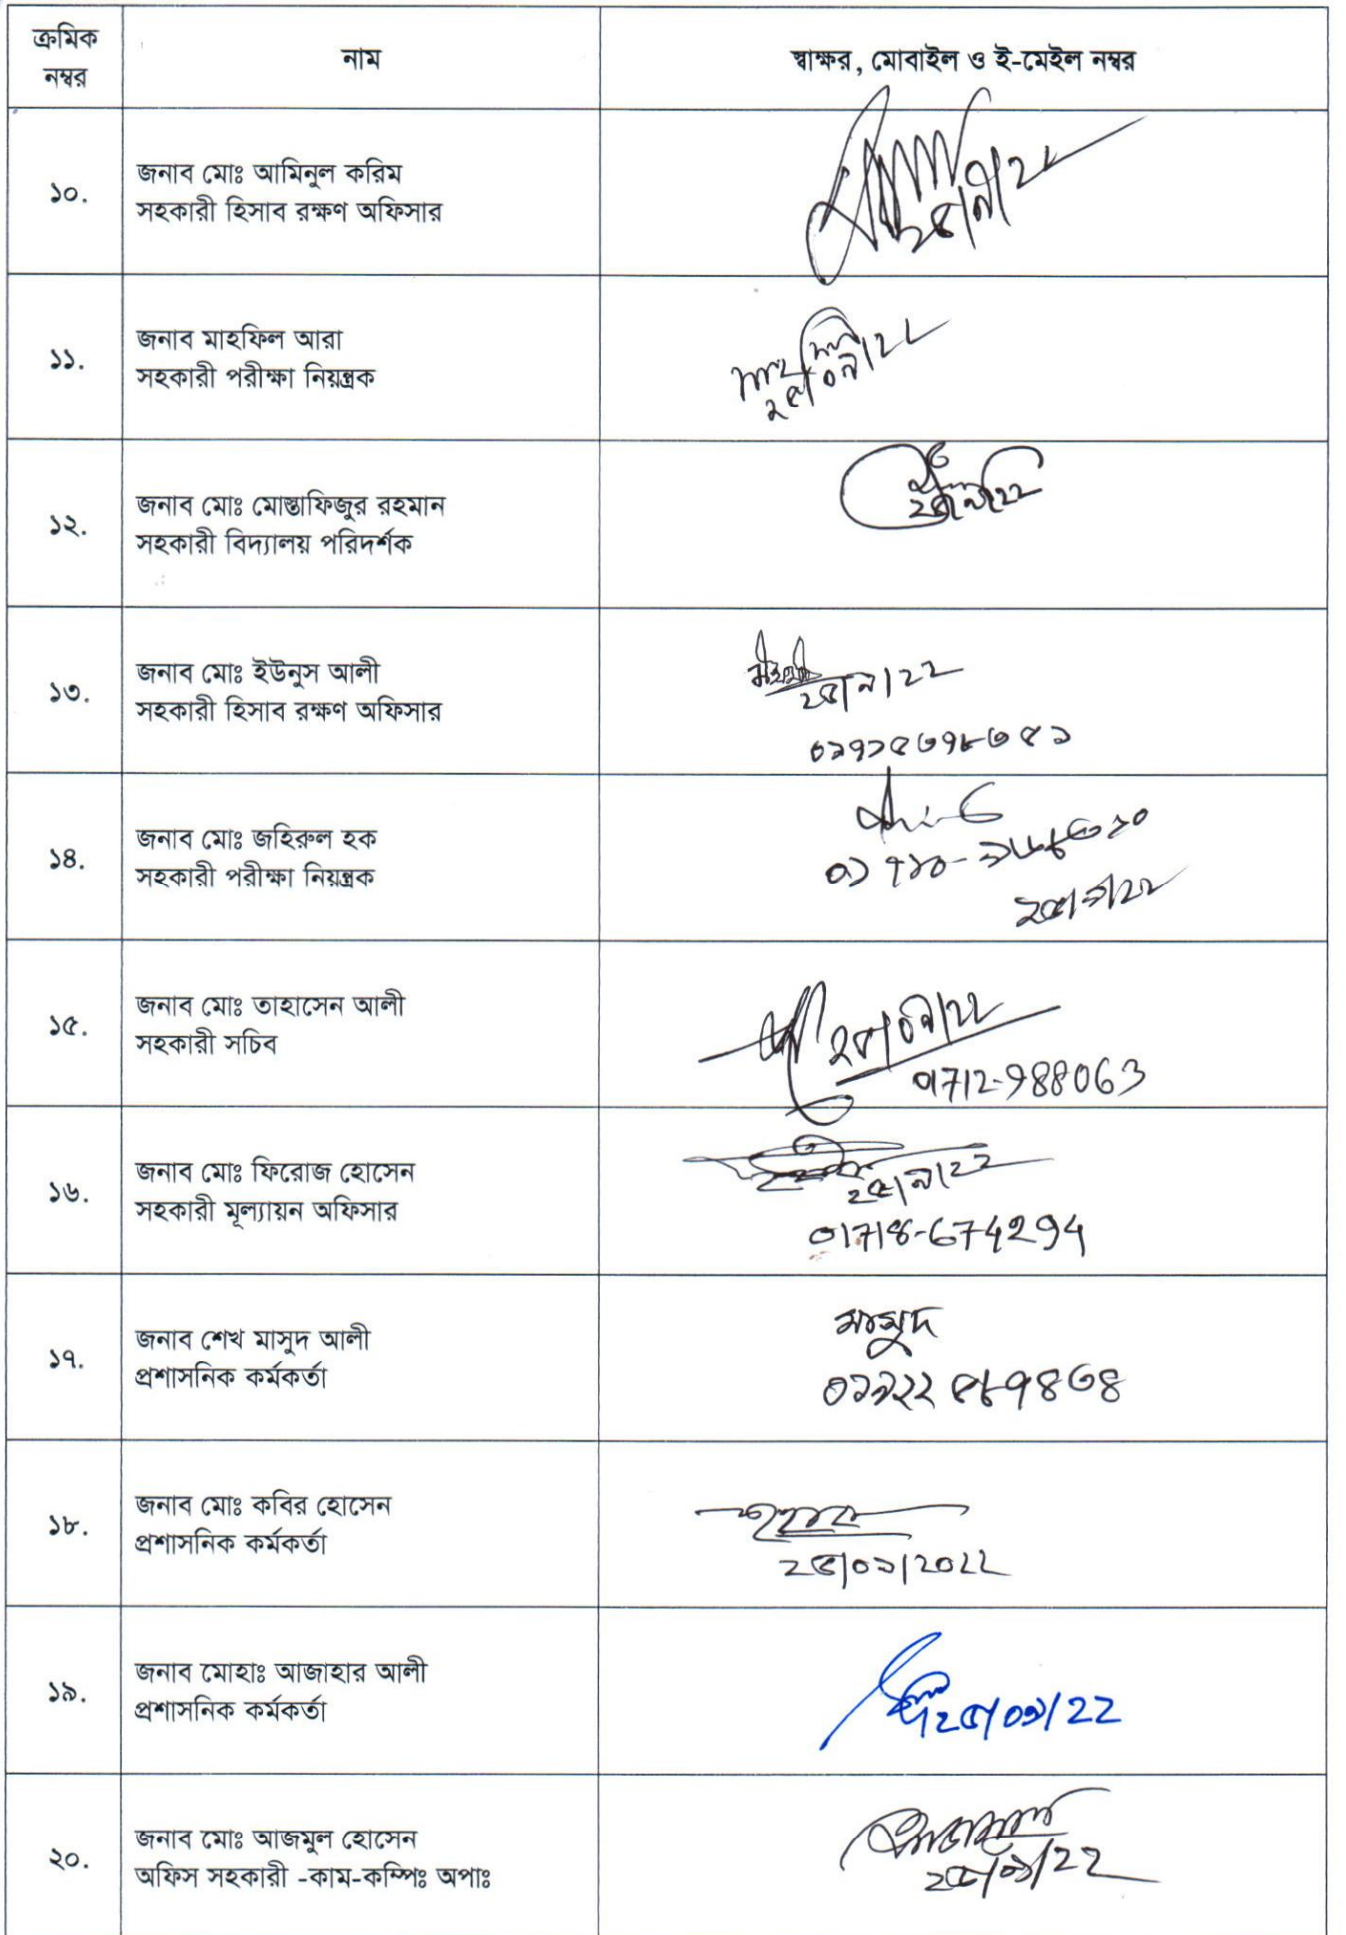 ক্রমিক
নম্বর
নাম
স্বাক্ষর, মোবাইল ও ই-মেইল নম্বর
১০.
জনাব মোঃ আমিনুল করিম
সহকারী হিসাব রক্ষণ অফিসার
১১.
জনাব মাহফিল আরা
সহকারী পরীক্ষা নিয়ন্ত্রক
২৫/০৯/২২
১২.
জনাব মোঃ মোস্তাফিজুর রহমান
সহকারী বিদ্যালয় পরিদর্শক
২৫/৯/২২
১৩.
জনাব মোঃ ইউনুস আলী
সহকারী হিসাব রক্ষণ অফিসার
২৫/৯/২২
০১৭১৫৩৭৮৩৫১
১৪.
জনাব মোঃ জহিরুল হক
সহকারী পরীক্ষা নিয়ন্ত্রক
২৫/৯/২২
১৫.
জনাব মোঃ তাহাসেন আলী
সহকারী সচিব
২৫/০৯/২২
01712-988063
১৬.
জনাব মোঃ ফিরোজ হোসেন
সহকারী মূল্যায়ন অফিসার
২৫/৯/২২
01718-674294
১৭.
জনাব শেখ মাসুদ আলী
প্রশাসনিক কর্মকর্তা
মাসুদ
০১৯২২ ৫৮৭৪৩৪
১৮.
জনাব মোঃ কবির হোসেন
প্রশাসনিক কর্মকর্তা
২৫/০৯/২০২২
১৯.
জনাব মোহাঃ আজাহার আলী
প্রশাসনিক কর্মকর্তা
২৫/০৯/২২
২০.
জনাব মোঃ আজমুল হোসেন
অফিস সহকারী -কাম-কম্পিঃ অপাঃ
২৫/০৯/২২